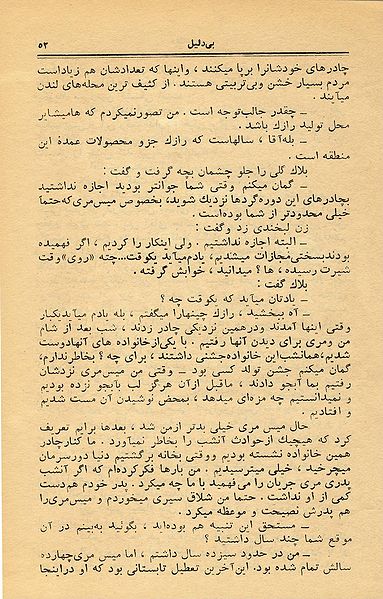 بی‌دلیل ۵۳
چادرهای خودشانرا برپا میکنند ، واینها که تعدادشان هم زیاداست
مردم بسیار خشن وبی‌تربیتی هستند . از کثیف ترین محله‌های لندن
میآیند .
ــ چقدر جالب‌توجه است . من تصورنمیکردم که هامپشایر
محل تولید رازک باشد .
ــ بله‌آقا ، سالهاست که رازک جزو محصولات عمدهٔ این
منطقه است .
بلاک کلی را جلو چشمان بچه گرفت و گفت :
ــ گمان میکنم وقتی شما جوانتر بودید اجازه نداشتید
بچادرهای این دوره‌گردها نزدیک شوید، بخصوص میس‌مری‌که‌حتما
خیلی محدودتر از شما بوده‌است .
زن لبخندی زد وگفت :
ــ البته اجازه نداشتیم . ولی اینکار را کردیم ، اگر فهمیده
بودندبسختی‌مجازات میشدیم ، یادم‌میآید یکوقت...چته «روی»وقت
شیرت رسیده ، ها ؟ میدانید ، خوابش گرفته .
بلاک گفت :
ــ یادتان میآید که یکوقت چه ؟
ــ آه ببخشید ، رازک چینهارا میگفتم ، بله یادم میآیدیکبار
وقتی اینها آمدند ودرهمین نزدیکی چادر زدند ، شب بعد از شام
من ومری برای دیدن آنها رفتیم . با یکی‌ازخانواده های آنهادوست
شدیم ، همانشب‌این خانواده‌جشنی داشتند ، برای چه ؟ بخاطرندارم،
گمان میکنم جشن تولد کسی بود ــ وقتی من میس‌مری نزدشان
رفتیم بما آبجو دادند ، ماقبل ازآن هرگز لب بآبجو نزده بودیم
و نمیدانستیم چه مزه‌ای میدهد ، بمحض نوشیدن آن مست شدیم
و افتادیم .
حال میس مری خیلی بدتر ازمن شد ، بعدها برایم تعریف
کرد که هیچیک ازحوادث آنشب را بخاطر نمیآورد . ما کنارچادر
همین خانواده نشسته بودیم ووقتی بخانه برگشتیم دنیا دورسرمان
میچرخید ، خیلی میترسیدیم . من بارها فکرکرده‌ام که اگر آنشب
پدری مری جریان را می‌فهمید با ما چه میکرد. پدر خودم هم‌دست
کمی از او نداشت . حتما من شلاق سیری میخوردم و میس‌مری‌را
هم پدرش نصیحت و موعظه میکرد .
ــ مستحق این تنبیه هم بوده‌اید ، بگوئید به‌بینم در آن
موقع شما چند سال داشتید ؟
ــ من در حدود سیزده سال داشتم ، اما میس مری‌چهارده
سالش تمام شده بود. این‌آخرین تعطیل تابستانی بود که او دراینجا